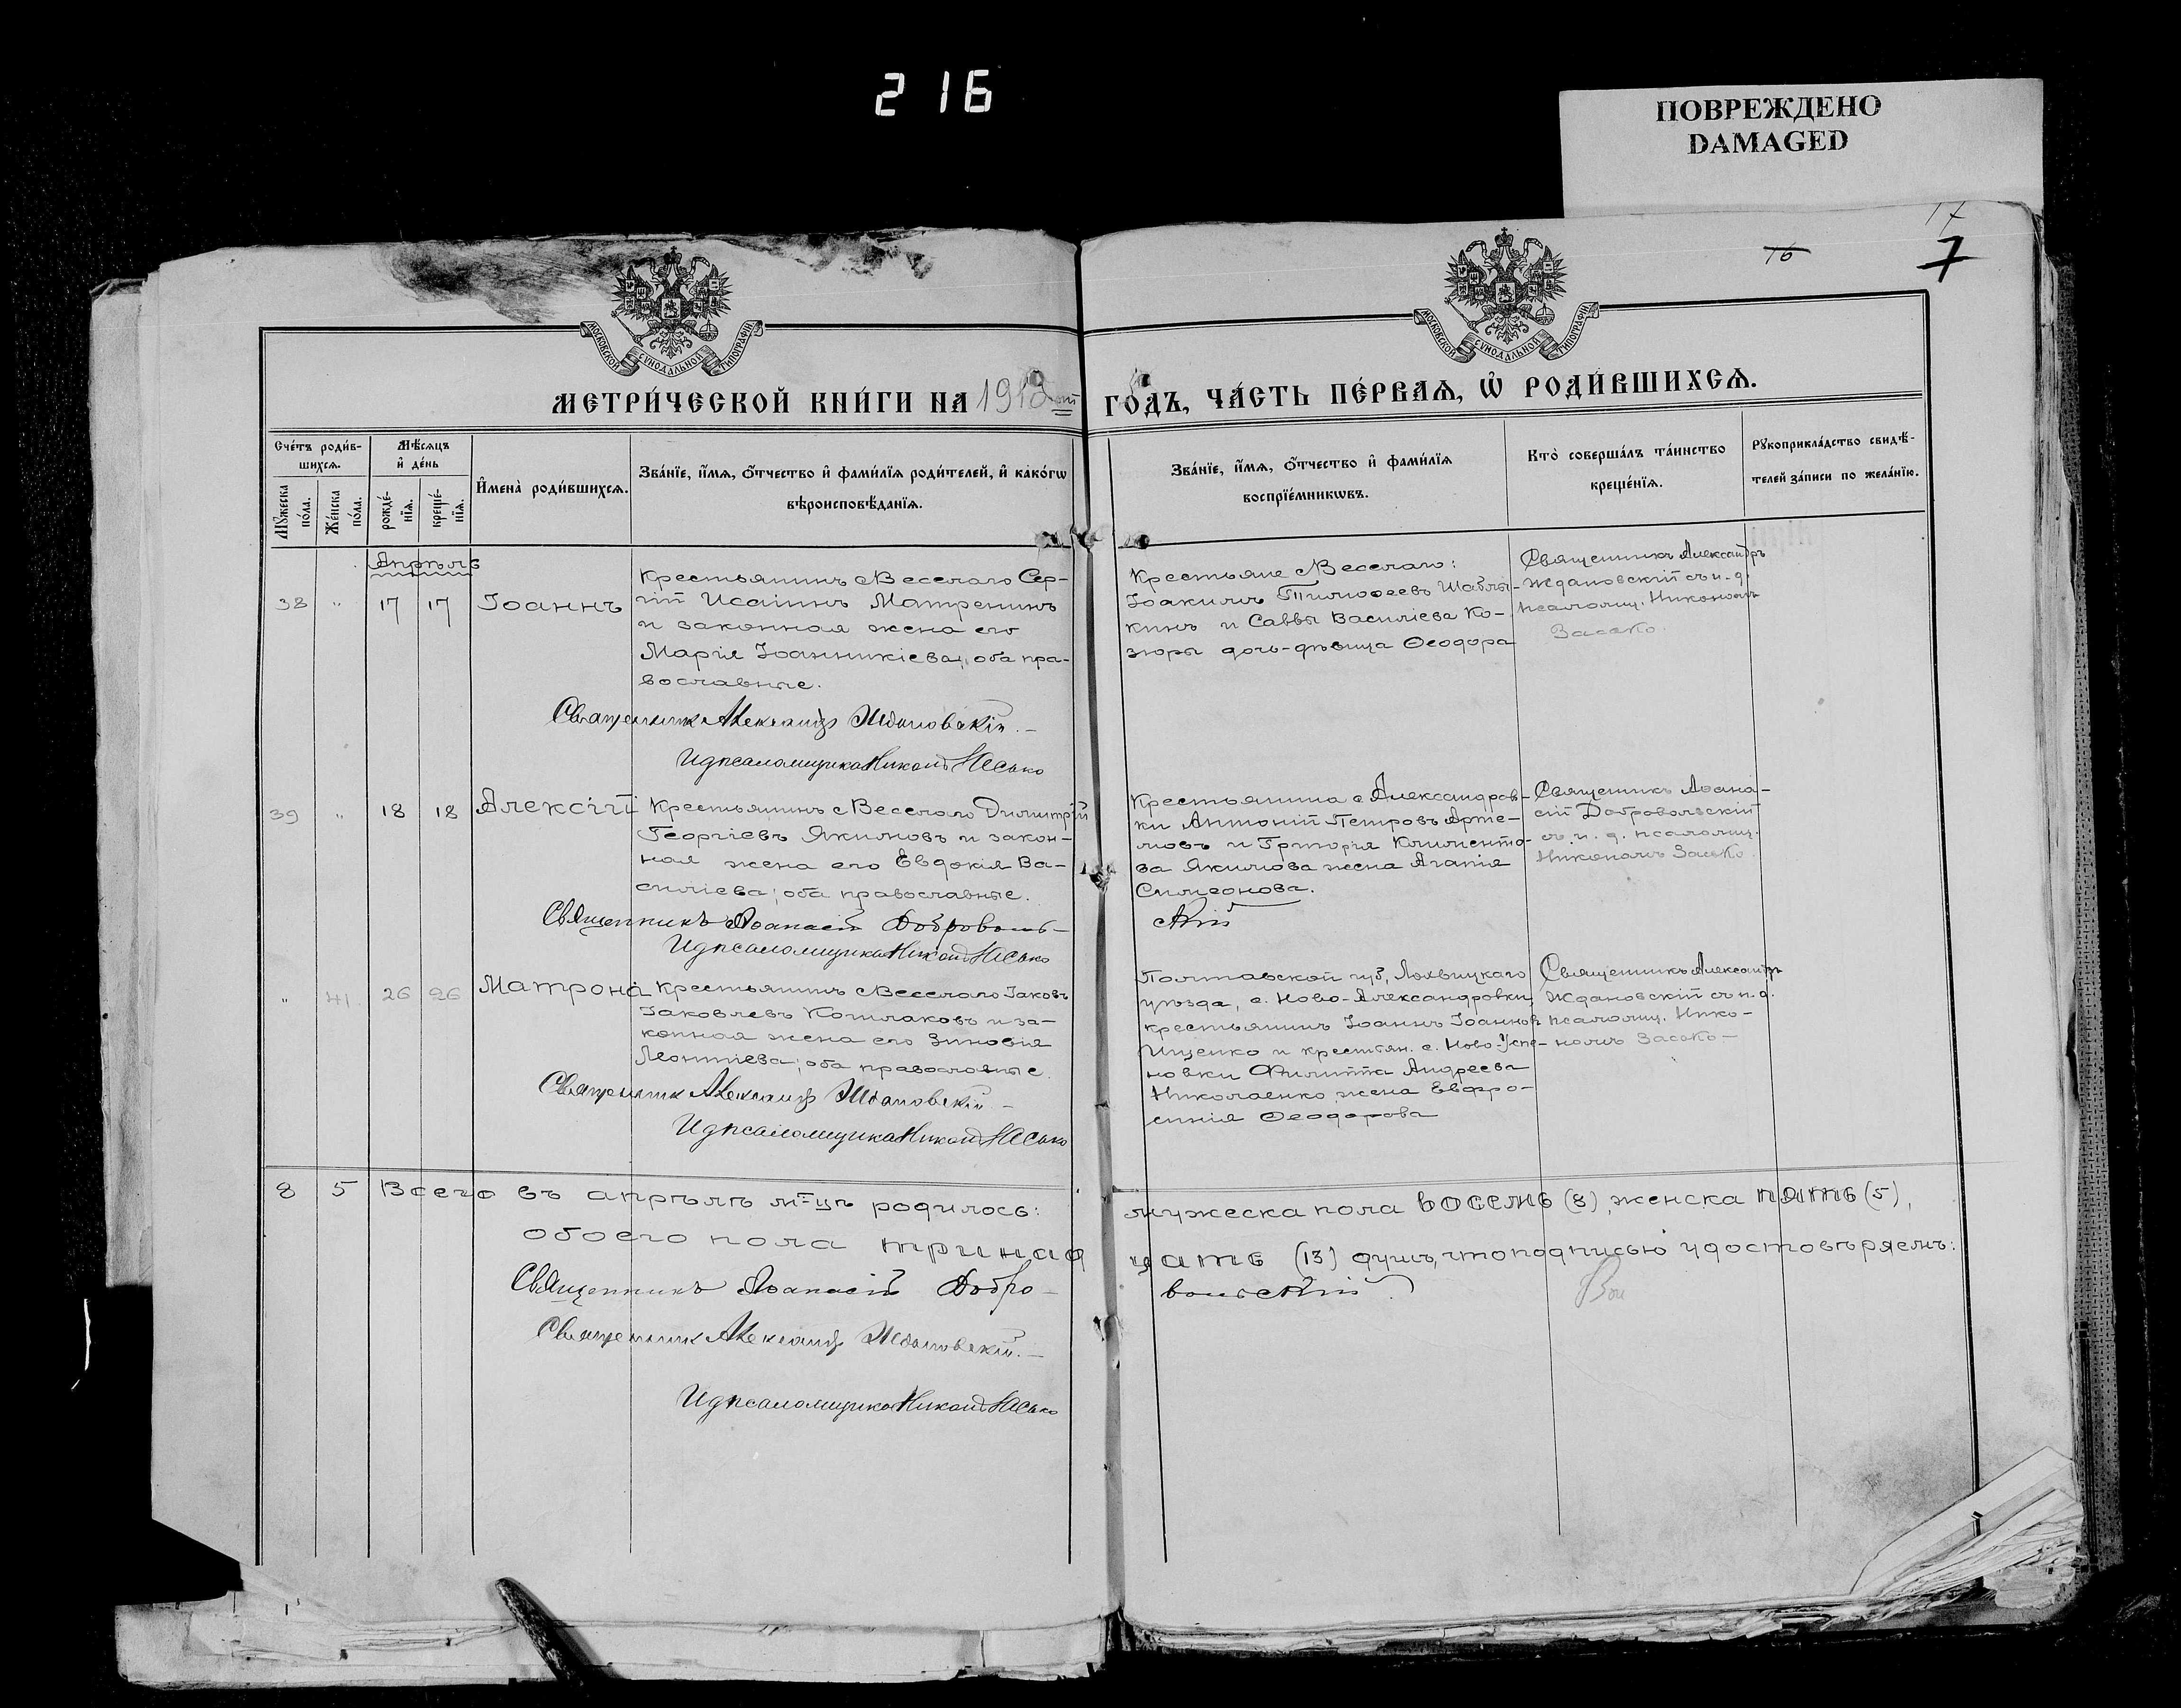 216
ПОВРЕЖДЕНО
DAMAGED
17
16
7
МОСКОВСКОЙ СУНОДАЛЬНОЙ ТИПОГРАФІИ
МОСКОВСКОЙ СУНОДАЛЬНОЙ ТИПОГРАФІИ
МЕТРИ́ЧЕСКОЙ КНИ́ГИ НА 1913 ГО́ДЪ, ЧА́СТЬ ПЕ́РВАѦ, Ѽ РОДИ́ВШИХСѦ.
Сче́тъ роди́в-
шихсѧ.
Мꙋ́жеска по́ла.
Же́нска по́ла.
Мѣ́сѧцъ
и҆ де́нь
рожде́-
нїѧ.
креще́-
нїѧ.
И҆мена̀ роди́вшихсѧ.
Зва́нїе, и҆́мѧ, ѻ҆́тчество и҆ фами́лїѧ роди́телей, и҆ како́гѡ
вѣроисповѣ́данїѧ.
Зва́нїе, и҆́мѧ, ѻ҆́тчество и҆ фами́лїѧ
воспрїе́мникѡвъ.
Кто̀ соверша́лъ та́инство
креще́нїѧ.
Рꙋкоприкла́дство свидѣ́-
телей за́писи по жела́нїю.
Апрѣль
38 " 17 17 Іоаннъ
Крестьянинъ с Веселаго Сер-
гій Исаіинъ Матренинъ
и законная жена его
Марія Іоанникіева; оба пра-
вославные.
Священник Александр Ждановскій.
И д псаломщика Никон Засько
Крестьяне с Веселаго:
Іоакимъ Тимоѳеевъ Шаблы-
кинъ и Саввы Василіева Ко-
зюры дочь-дѣвица Ѳеодора
Священникъ Александръ
Ждановскій съ и. д.
псаломщ. Никономъ
Засько.
39 " 18 18 Алексій
Крестьянинъ с Веселаго Димитрій
Георгіевъ Якимовъ и закон-
ная жена его Евдокія Ва-
силіева; оба православные.
Священникъ Аѳанасій Доброволь-
И д псаломщика Никон Засько
Крестьянина с Александров-
ки Антоній Петровъ Арте-
мовъ и Григорія Климento-
ва Якимова жена Агапія
Симеонова.
скій
Священникъ Аѳана-
сій Добровольскій
съ и. д. псаломщ.
Никономъ Засько.
" 41. 26 26 Матрона
Крестьянинъ с Веселаго Іаковъ
Іаковлевъ Колпаковъ и за-
конная жена его Зиновія
Леонтіева; оба православные.
Священник Александр Ждановскій
И д псаломщика Никон Засько
Полтавской губ, Лохвицкаго
уѣзда, с. Ново-Александровки,
крестьянинъ Іоаннъ Іоаннов
Ищенко и крестьян. с. Ново-Успе-
новки Филиппа Андреева
Николаенко жена Евфро-
синія Ѳеодорова
Священникъ Александръ
Ждановскій съ и. д.
псаломщ. Нико-
номъ Засько-
8 5 Всего въ апрѣлѣ м-цѣ родилось: мужеска пола восемь (8), женска пять (5),
обоего пола тринад цать (13) душъ, что подписью удостовѣряемъ:
Священникъ Аѳанасій Добро- вольскій.
Священник Александр Ждановскій.
И д псаломщика Никон Засько